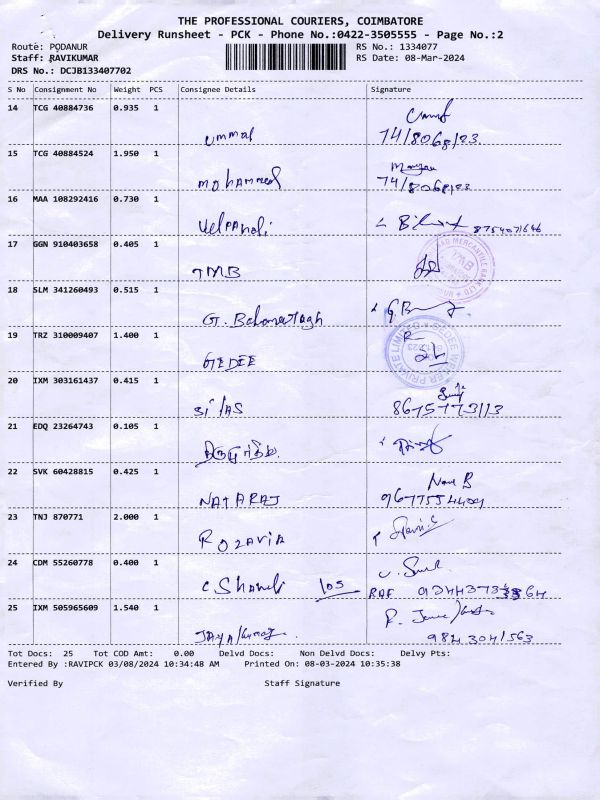 THE PROFESSIONAL COURIERS, COIMBATORE
Delivery Runsheet - PCK - Phone No.:0422-3505555 - Page No.:2
Route: PODANUR
RS No.: 1334077
Staff: RAVIKUMAR
RS Date: 08-Mar-2024
DRS No.: DCJB133407702
S No Consignment No Weight PCS Consignee Details Signature
14 TCG 40884736 0.935 1
ummal 74/8068/23.
15 TCG 40884524 1.950 1
mohammed 74/8068/23
16 MAA 108292416 0.730 1
Velpandi
17 GGN 910403658 0.405 1
TMB
18 SLM 341260493 0.515 1
G.
19 TRZ 310009407 1.400 1
GEDEE
20 IXM 303161437 0.415 1
Silas
21 EDQ 23264743 0.105 1
22 SVK 60428815 0.425 1
NATARAJ
23 TNJ 870771 2.000 1
ROZAVIA
24 CDM 55260778 0.400 1
105
25 IXM 505965609 1.540 1
Jayakumar
Tot Docs: 25 Tot COD Amt: 0.00 Delvd Docs: Non Delvd Docs: Delvy Pts:
Entered By :RAVIPCK 03/08/2024 10:34:48 AM Printed On: 08-03-2024 10:35:38
Verified By Staff Signature